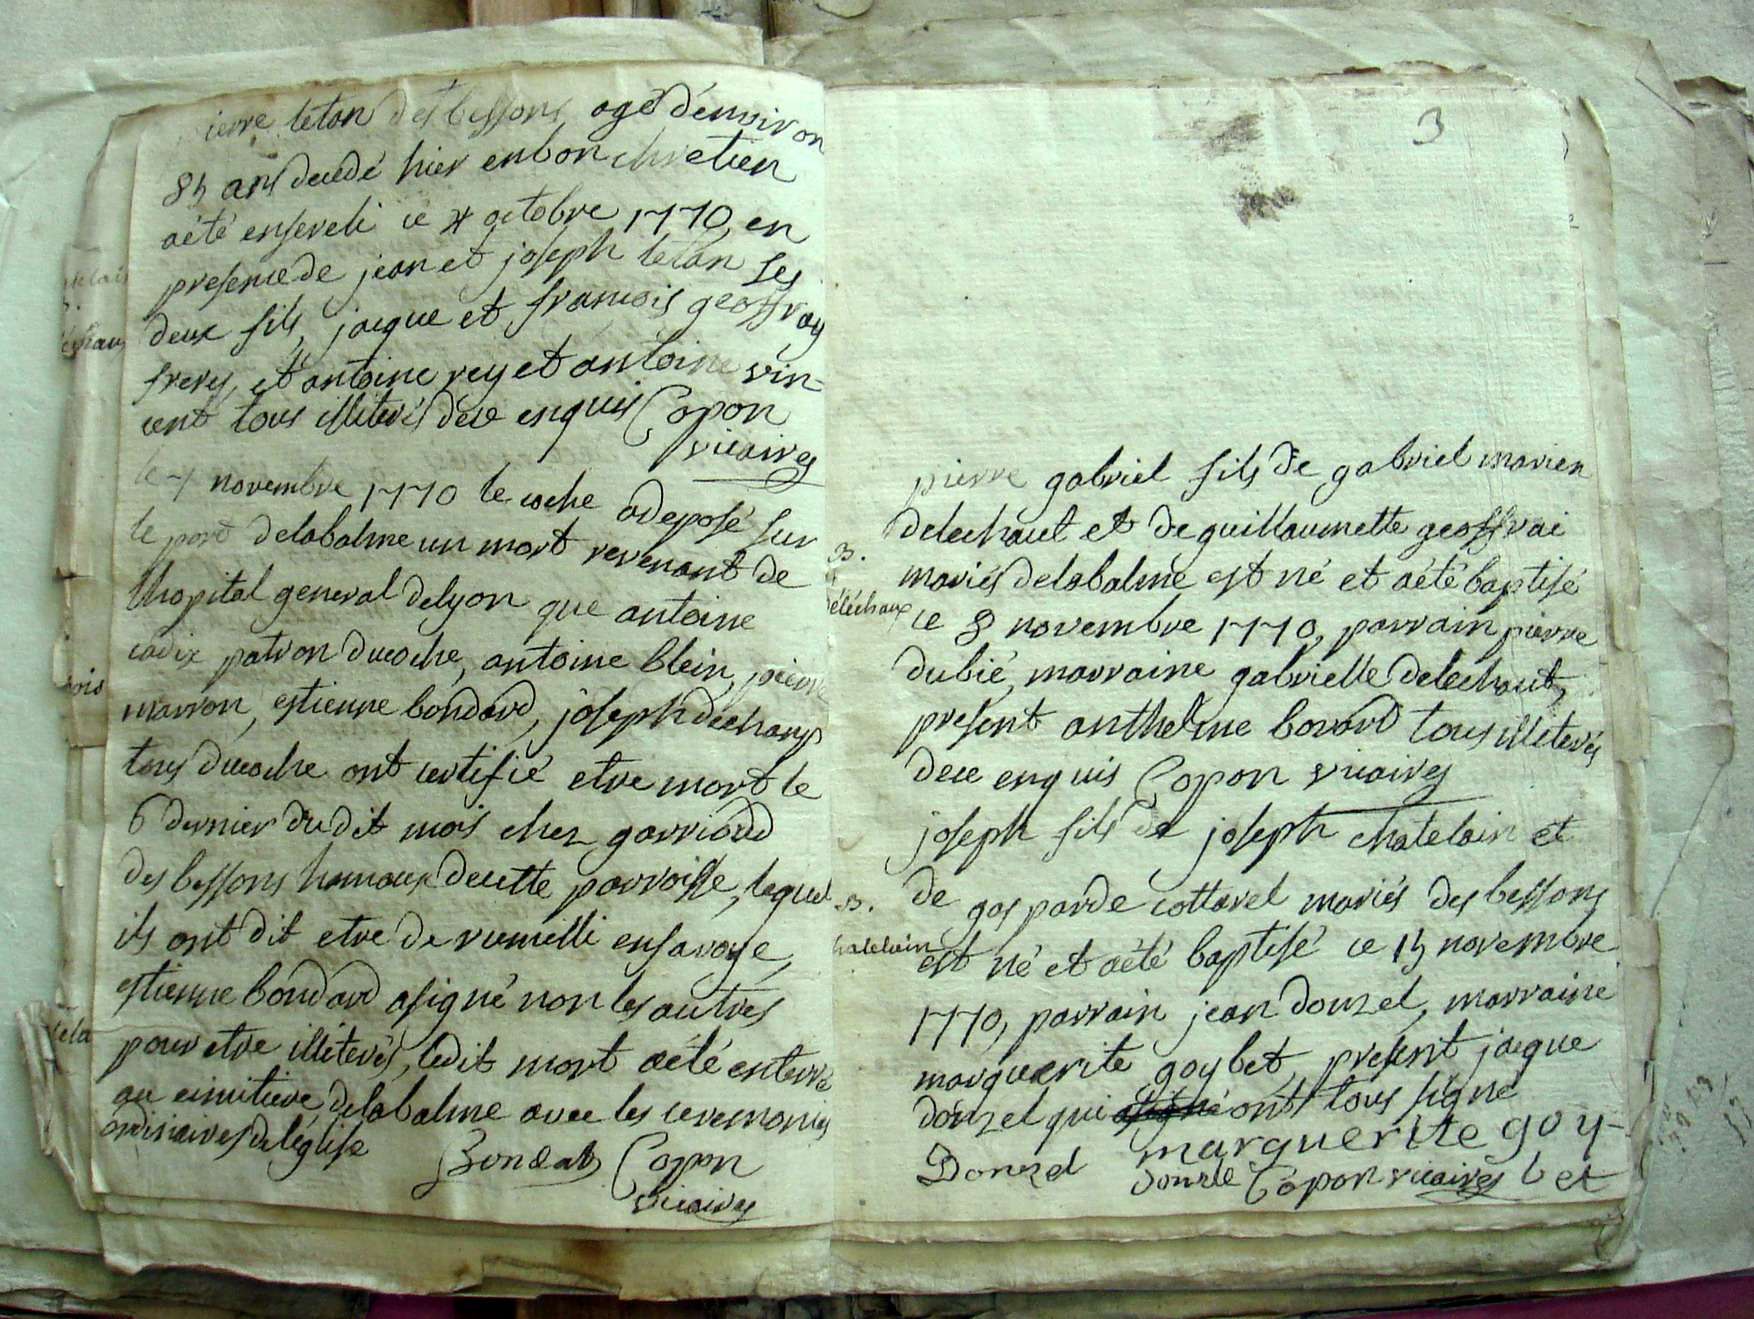 ierre letan des bessons agé d'environ
85 ans decedé hier en bon chretien
aété enseveli ce 4 octobre 1770, en
presence de jean et joseph letan ses
deux fils, jacque et francois geoffray
freres, et antoine rey et antoine vin-
cent tous illiterés de ce enquis Copon
vicaires
le 7 novembre 1770 le coche adeposé sur
le port delabalme un mort revenant de
lhopital general delyon que antoine
cadix patron ducoche, antoine blein, pierre
marron, estienne bondard, joseph dechamp
tous ducoche ont certifié etre mort le
6 dernier dudit mois chez garrioud
des bessons hamaux decette parroisse, lequel
ils ont dit etre de rumilli ensavoye,
estienne bondard asigné non les autres
pour etre illiterés, ledit mort aété enterré
au cimitiere delabalme avec les ceremonies
ordinaires deléglise
Bondat Copon
vicaires
3
pierre gabriel fils de gabriel marien
delechaut et de guillaumette geoffrai
B.
mariés delabalme est né et aété baptisé
deléchaux
ce 8 novembre 1770, parrain pierre
dubié, marraine gabrielle delechaut,
present anthelme borard tous illiterés
dece enquis Copon vicaires
joseph fils de joseph chatelain et
B.
de gasparde cottarel mariés des bessons
hatelain
est né et aété baptisé ce 15 novembre
1770, parrain jean douzel, marraine
marguerite goybet, present jacque
douzel qui ont tous signé
marguerite goy-
Douzel douzel Copon vicaires bet